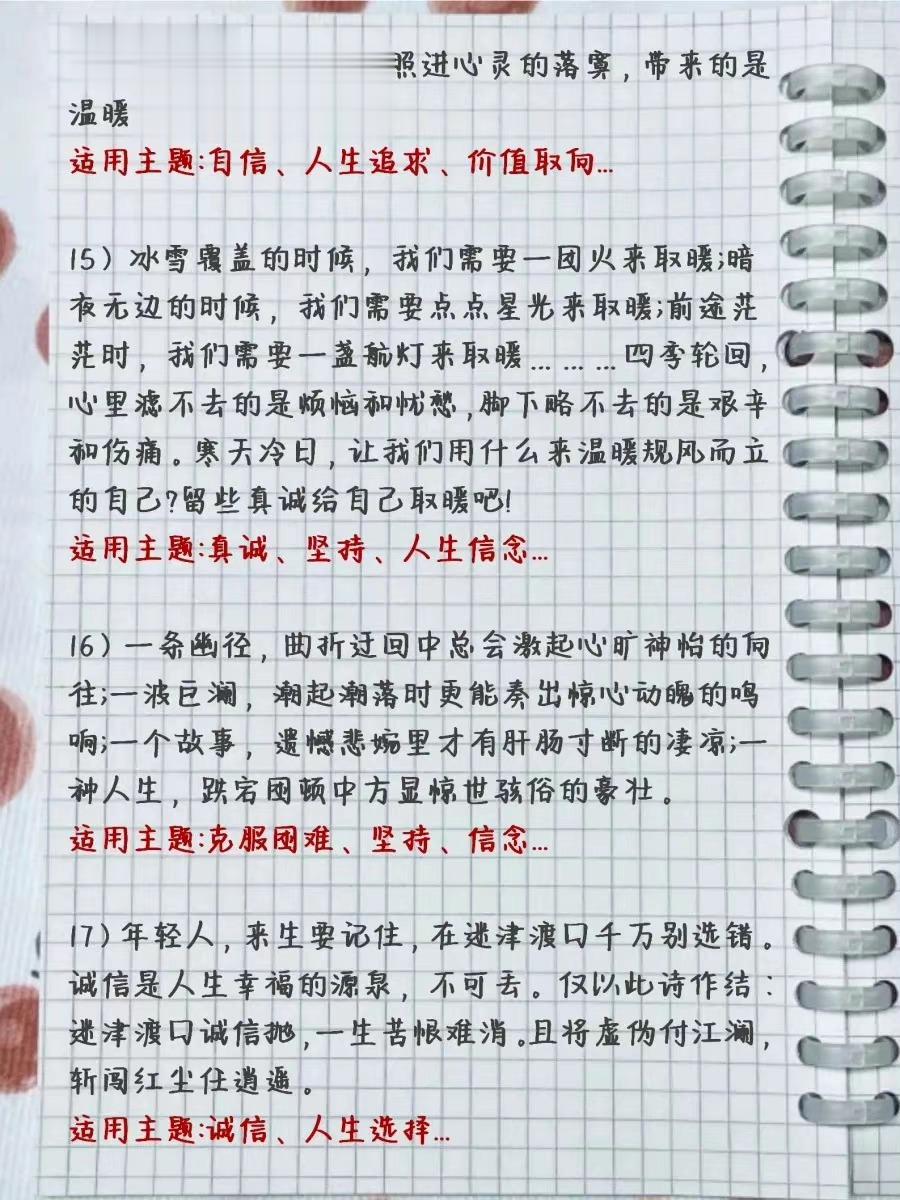 照进心灵的落寞，带来的是
温暖
适用主题:自信、人生追求、价值取向...
15）冰雪覆盖的时候，我们需要一团火来取暖;暗
夜无边的时候，我们需要点点星光来取暖;前途茫
茫时，我们需要一盏航灯来取暖... ... ...四季轮回，
心里滤不去的是烦恼和忧愁,脚下略不去的是艰辛
和伤痛。寒天冷日，让我们用什么来温暖规风而立
的自己?留些真诚给自己取暖吧!
适用主题:真诚、坚持、人生信念...
16）一条幽径，曲折迂回中总会激起心旷神怡的向
往;一波巨澜，潮起潮落时更能奏出惊心动魄的鸣
响;一个故事，遗憾悲婉里才有肝肠寸断的凄凉;一
种人生，跌宕困顿中方显惊世骇俗的豪壮。
适用主题:克服困难、坚持、信念...
17）年轻人，来生要记住，在迷津渡口千万别选错。
诚信是人生幸福的源泉，不可丢。仅以此诗作结：
迷津渡口诚信抛,一生苦恨难消。且将虚伪付江澜，
斩闯红尘任逍遥。
适用主题:诚信、人生选择...